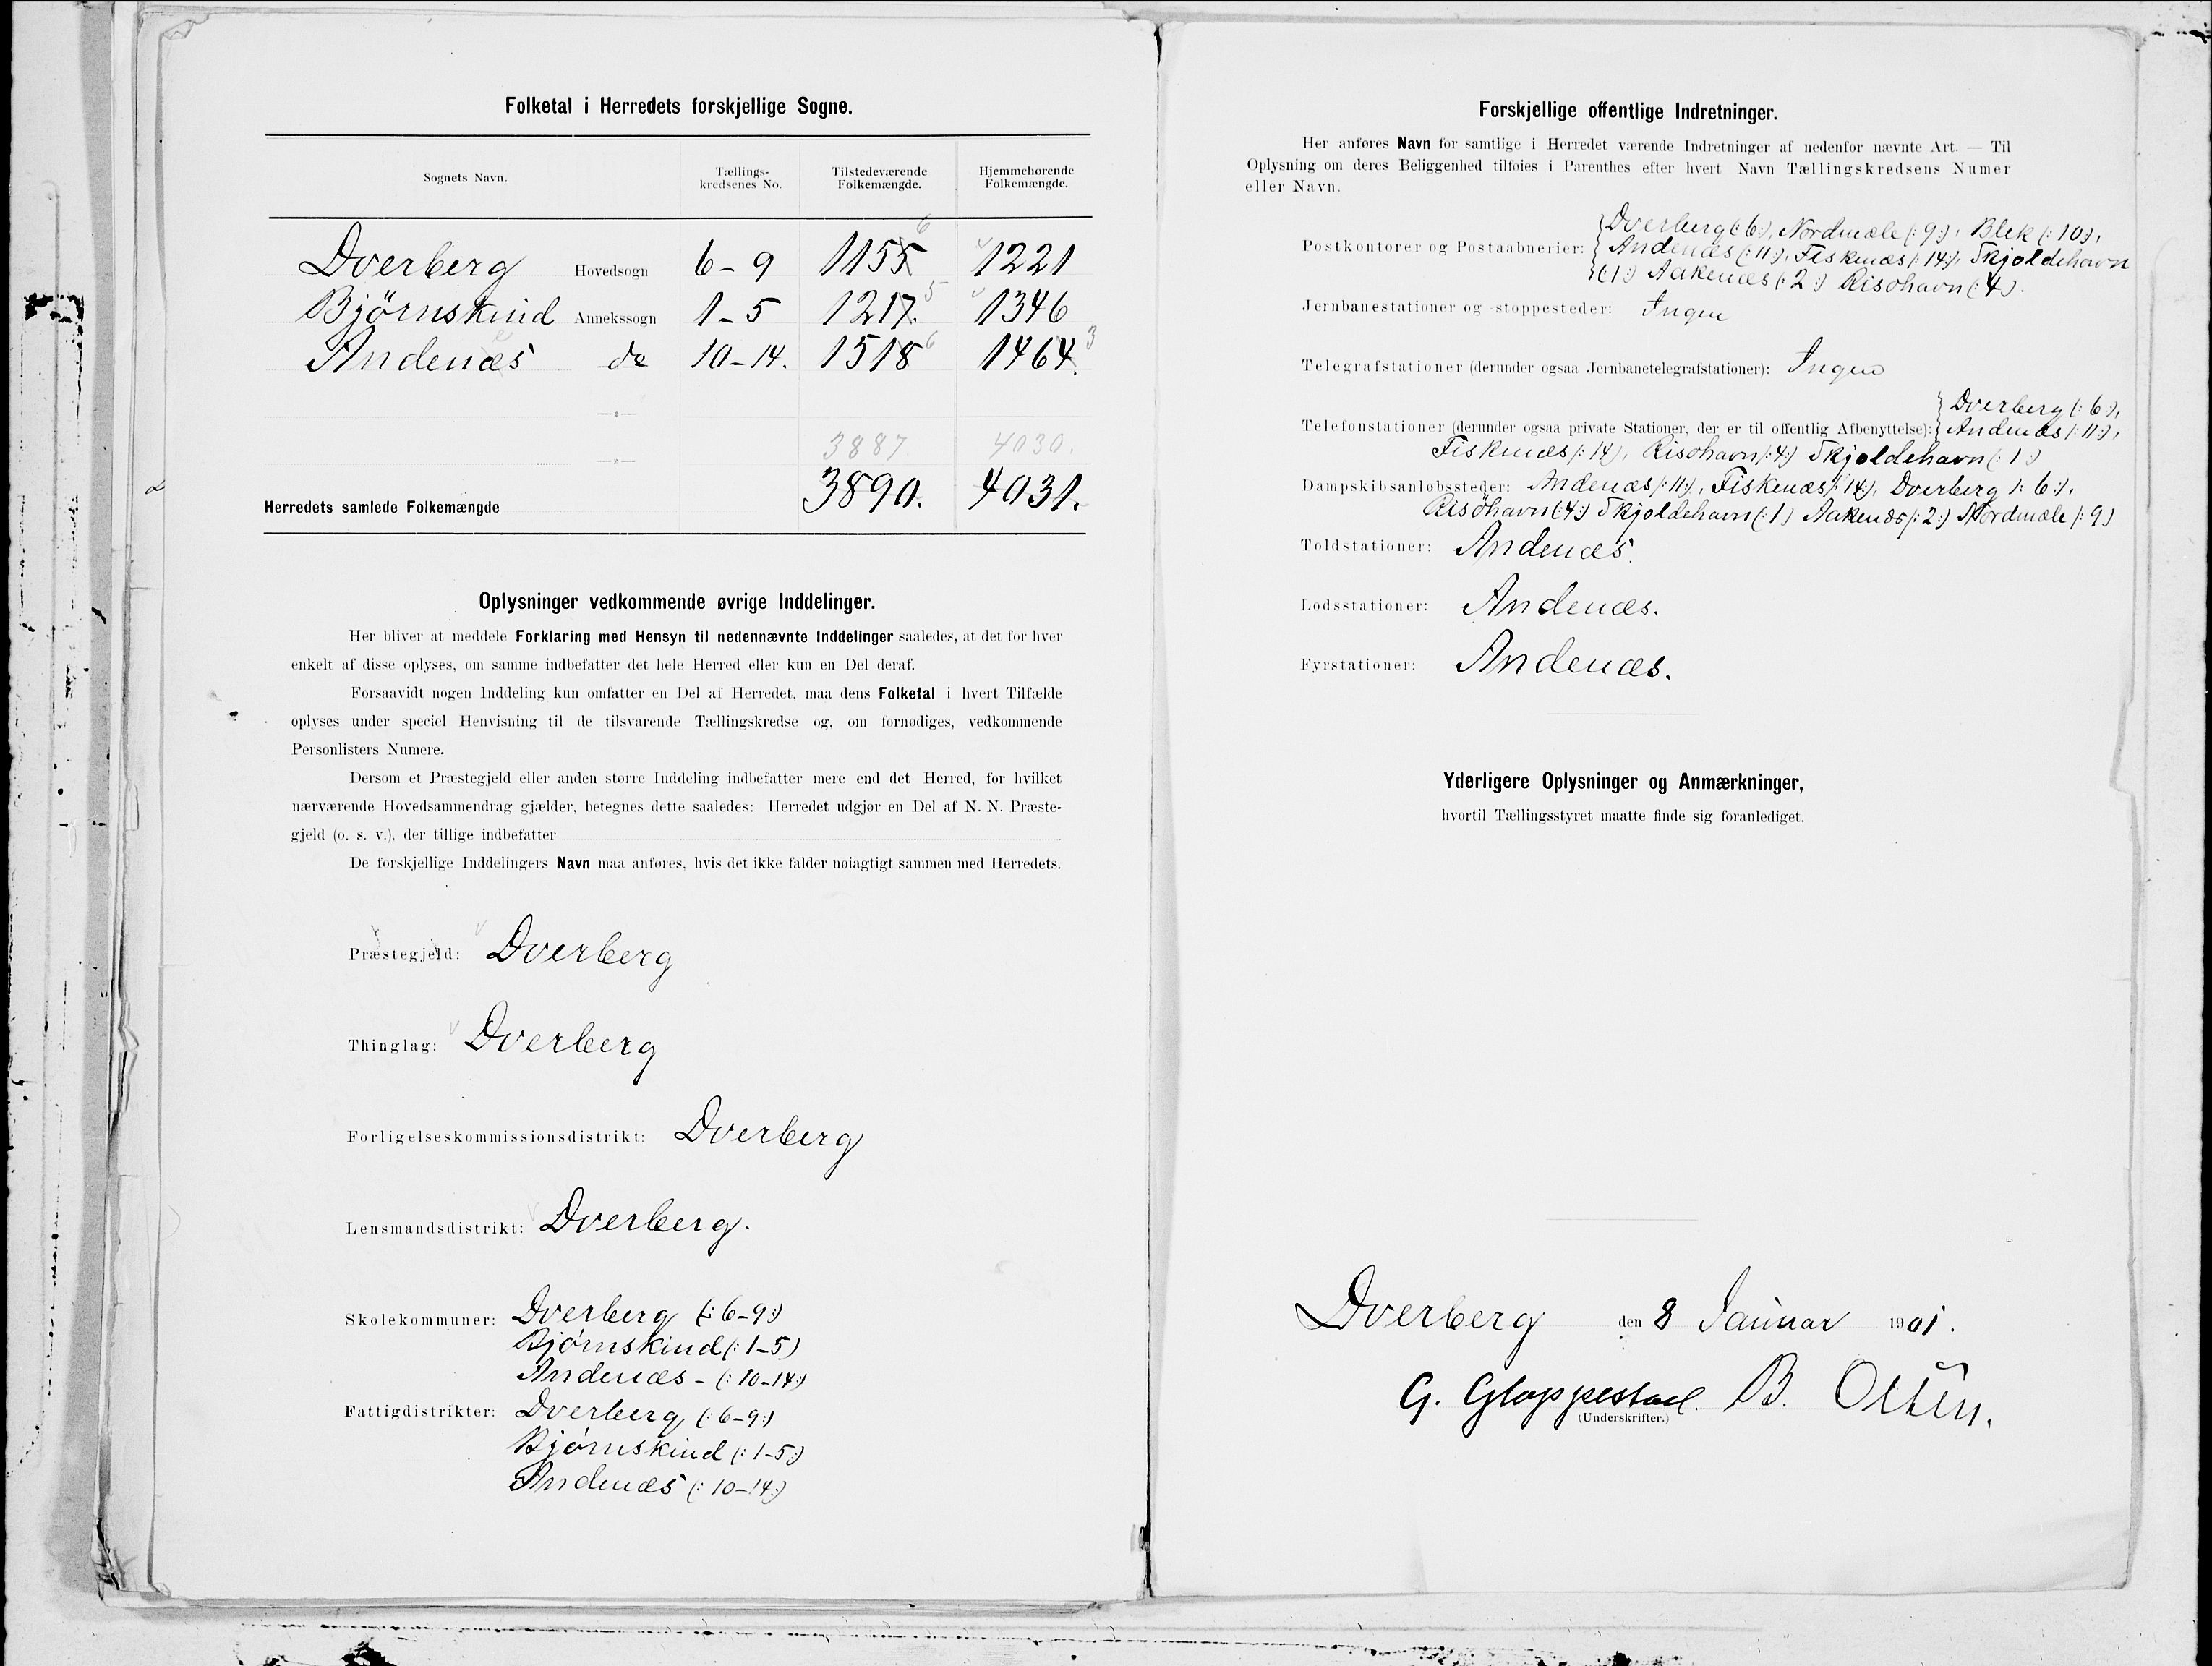 Folketal i Herredets forskjellige Sogne.
Sognets Navn. Tællings-kredsenes No. Tilstedeværende Folkemængde. Hjemmehørende Folkemængde.
6
Dverberg Hovedsogn 6-9 1155 1221
Bjørnskind Annekssogn 1-5 1217. 5 1346
Andenæs do 10-14. 1518 6 1464. 3
—»—
3887. 4030.
—»—
Herredets samlede Folkemængde 3890. 4031.
Oplysninger vedkommende øvrige Inddelinger.
Her bliver at meddele Forklaring med Hensyn til nedennævnte Inddelinger saaledes, at det for hver
enkelt af disse oplyses, om samme indbefatter det hele Herred eller kun en Del deraf.
Forsaavidt nogen Inddeling kun omfatter en Del af Herredet, maa dens Folketal i hvert Tilfælde
oplyses under speciel Henvisning til de tilsvarende Tællingskredse og, om fornødiges, vedkommende
Personlisters Numere.
Dersom et Præstegjeld eller anden større Inddeling indbefatter mere end det Herred, for hvilket
nærværende Hovedsammendrag gjælder, betegnes dette saaledes: Herredet udgjør en Del af N. N. Præste-
gjeld (o. s. v.), der tillige indbefatter
De forskjellige Inddelingers Navn maa anføres, hvis det ikke falder nøiagtigt sammen med Herredets.
Præstegjeld: Dverberg
Thinglag: Dverberg
Forligelseskommissionsdistrikt: Dverberg
Lensmandsdistrikt: Dverberg.
Skolekommuner: Dverberg (: 6-9:)
Bjørnskind (: 1-5)
Andenæs - (: 10-14:)
Fattigdistrikter: Dverberg (: 6-9:)
Bjørnskind (: 1-5:)
Andenæs (: 10-14:)
Forskjellige offentlige Indretninger.
Her anføres Navn for samtlige i Herredet værende Indretninger af nedenfor nævnte Art. — Til
Oplysning om deres Beliggenhed tilføies i Parenthes efter hvert Navn Tællingskredsens Numer
eller Navn.
Dverberg (: 6:), Nordmæle (: 9:), Blek (: 10:),
Postkontorer og Postaabnerier: Andenæs (: 11:), Fiskenæs (: 14:), Skjoldehavn
(: 1:) Aakenæs (: 2:) Risøhavn (: 4:).
Jernbanestationer og -stoppesteder: Ingen
Telegrafstationer (derunder ogsaa Jernbanetelegrafstationer): Ingen
Dverberg (: 6:),
Telefonstationer (derunder ogsaa private Stationer, der er til offentlig Afbenyttelse): Andenæs (: 11:),
Fiskenæs (: 14), Risøhavn (: 4:) Skjoldehavn (: 1:)
Dampskibsanløbssteder: Andenæs (: 11:), Fiskenæs (: 14:), Dverberg (: 6:),
Risøhavn (: 4:) Skjoldehavn (: 1) Aakenæs (: 2:) Nordmæle (: 9)
Toldstationer: Andenæs.
Lodsstationer: Andenæs.
Fyrstationer: Andenæs.
Yderligere Oplysninger og Anmærkninger,
hvortil Tællingsstyret maatte finde sig foranlediget.
Dverberg den 8 Januar 1901.
G. Gloppestad. B. Olsen.
(Underskrifter.)